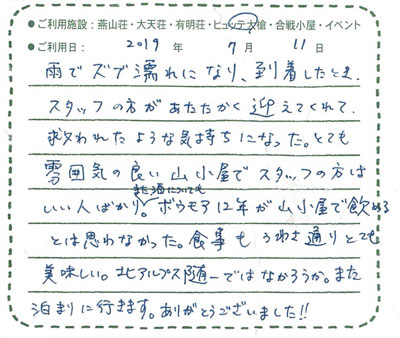 ●ご利用施設：燕山荘・大天荘・有明荘・ヒュッテ大槍・合戦小屋・イベント
●ご利用日：2019年7月11日
雨でズブ濡れになり、到着したとき、
スタッフの方があたたかく迎えてくれて、
救われたような気持ちになった。とても
雰囲気の良い山小屋でスタッフの方は
いい人ばかり。またお酒についても ボウモア12年が山小屋で飲める
とは思わなかった。食事もうわさ通りとても
美味しい。北アルプス随一ではなかろうか。また
泊まりに行きます。ありがとうございました!!